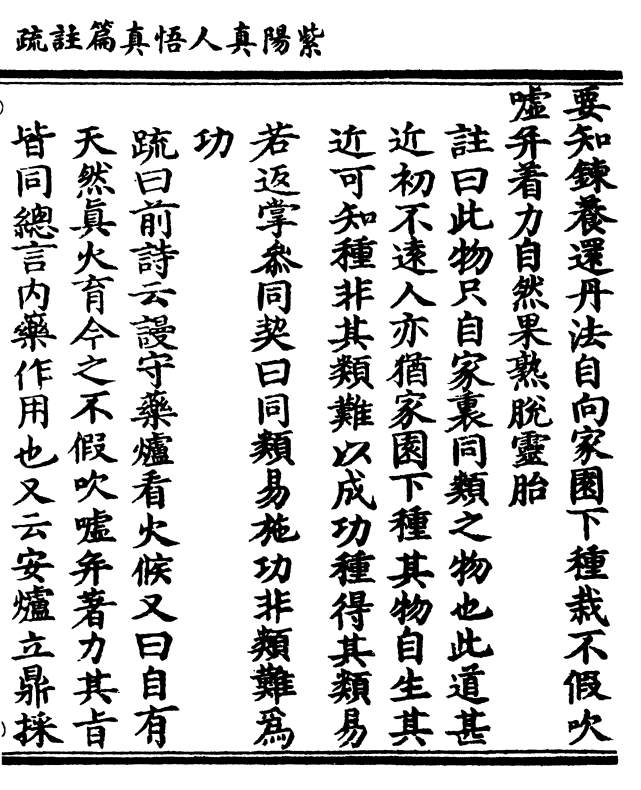 紫陽真人悟真篇註疏
要知鍊養還丹法自向家園下種栽不假吹
噓并着力自然果熟脫靈胎
註曰此物只自家裏同類之物也此道甚
近初不遠人亦猶家園下種其物自生其
近可知種非其類難以成功種得其類易
若返掌叅同契曰同類易施功非類難爲
功
疏曰前詩云謾守藥爐看火候又曰自有
天然眞火育今之不假吹噓并著力其旨
皆同總言內藥作用也又云安爐立鼎採